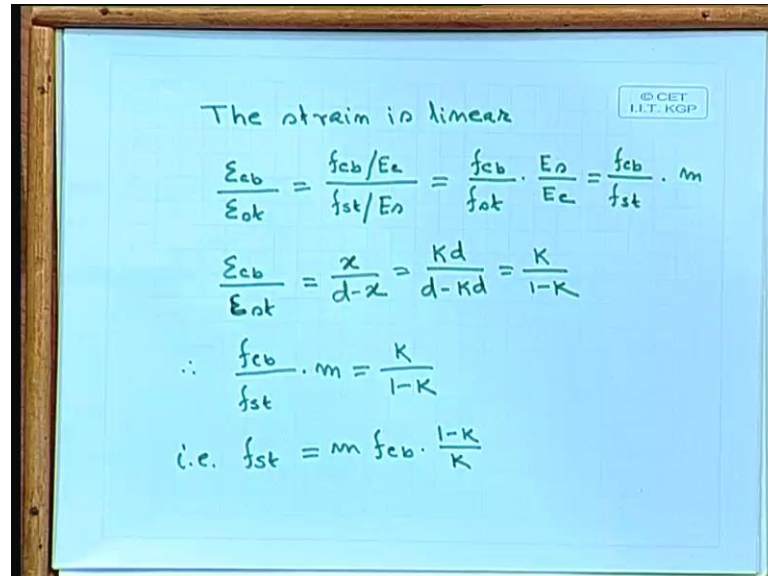 © CET
I.I.T. KGP
The strain is linear
εcb/εst = (fcb/Ec)/(fst/Es) = fcb/fst · Es/Ec = fcb/fst · m
εcb/εst = x/(d-x) = Kd/(d-Kd) = K/(1-K)
∴ fcb/fst · m = K/(1-K)
i.e. fst = m fcb · (1-K)/K